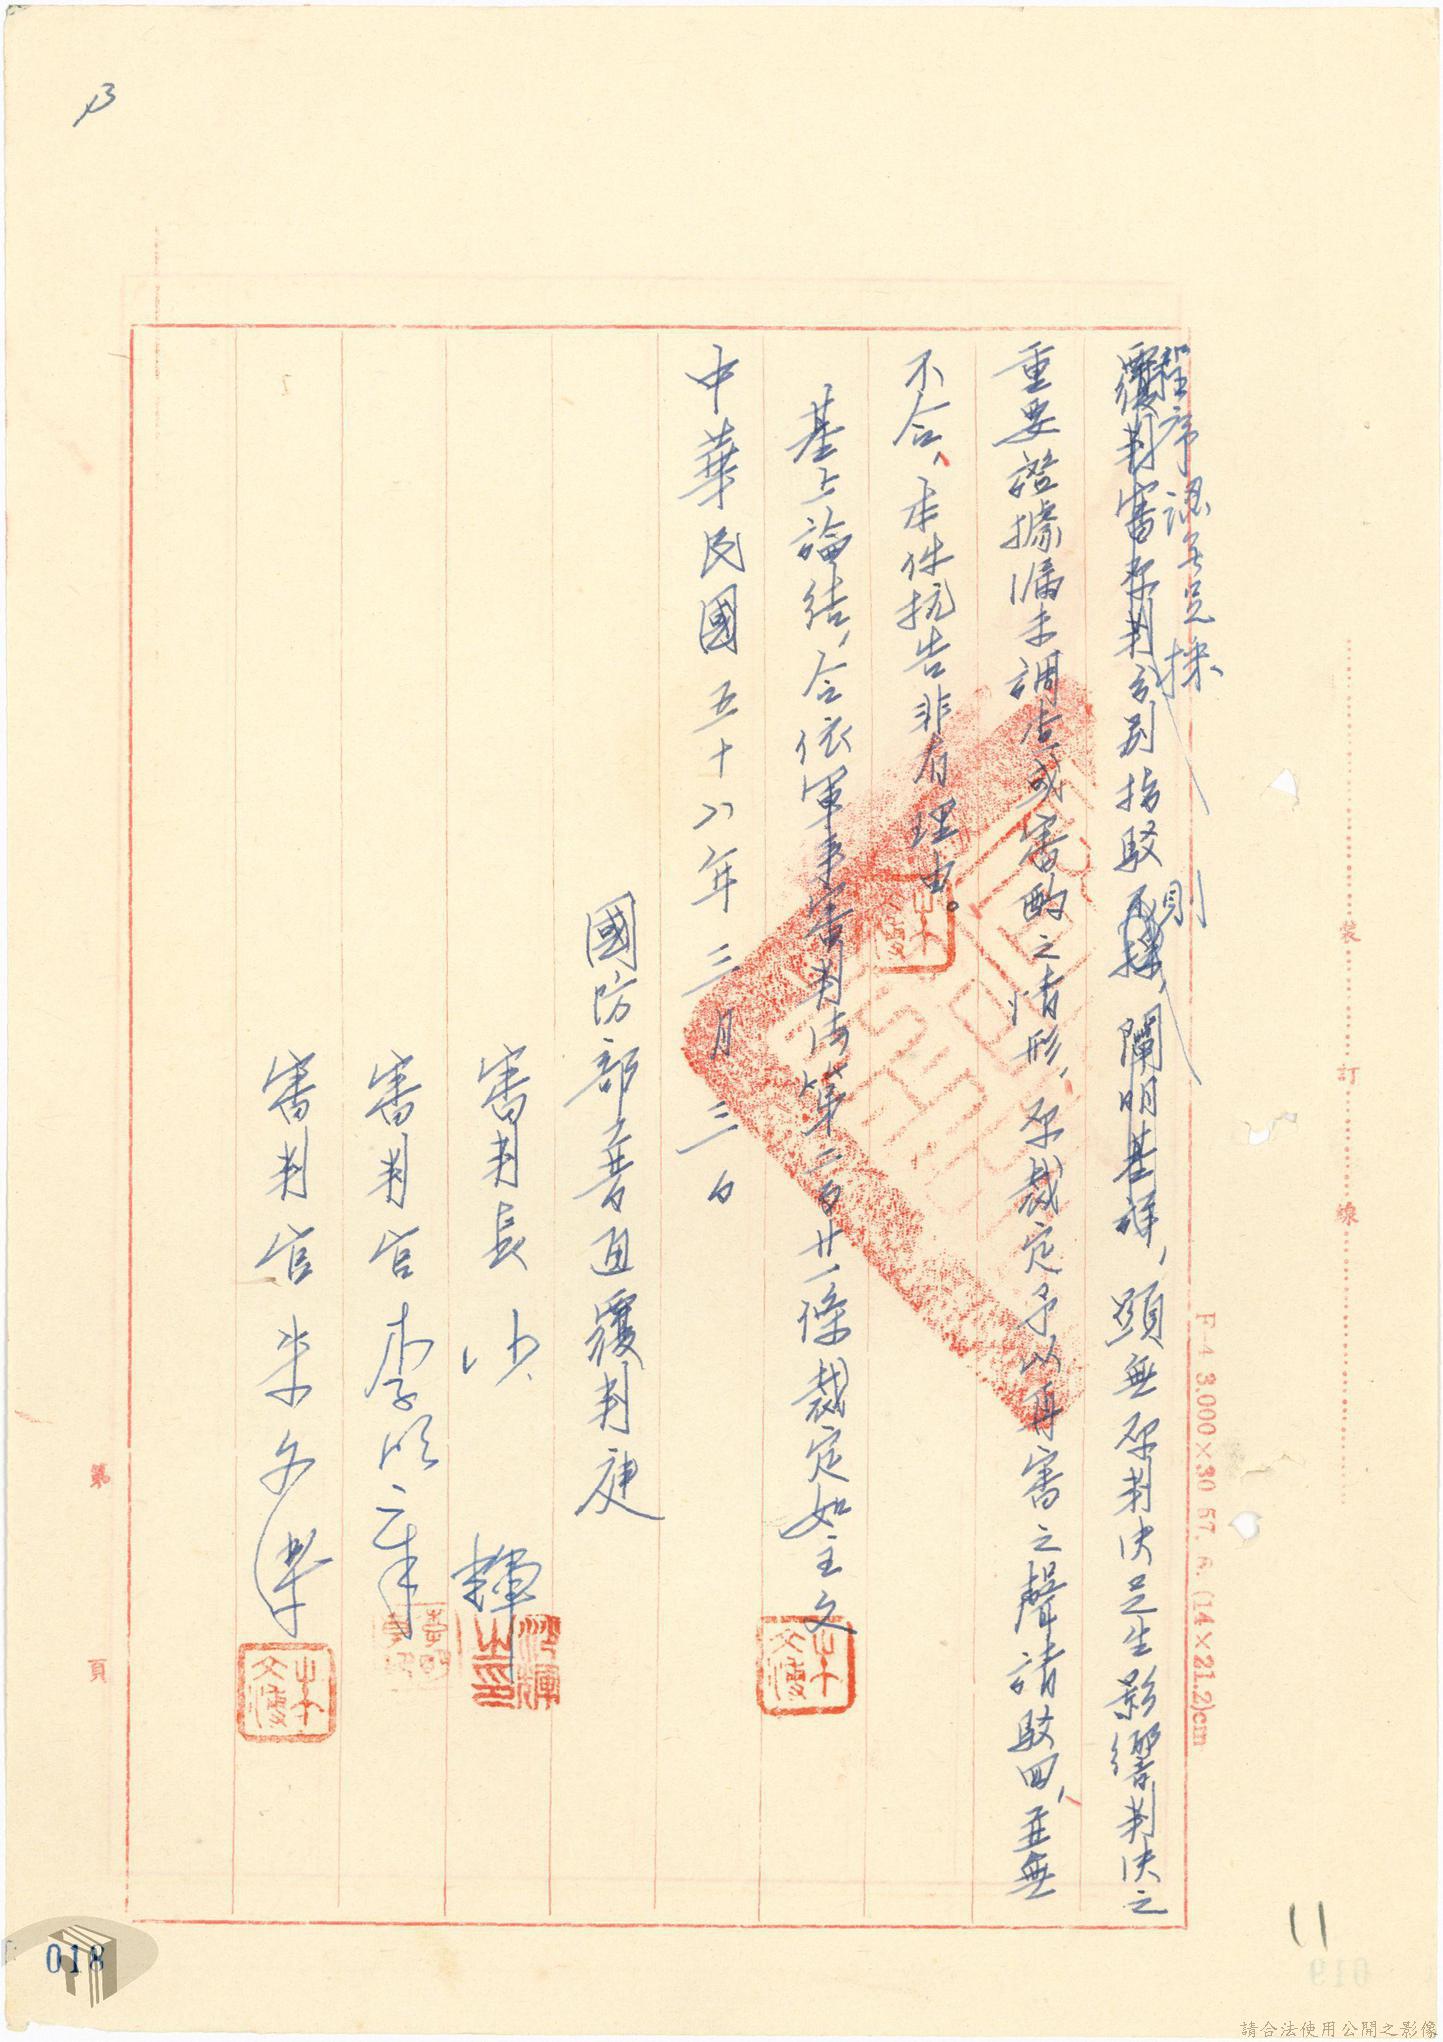 程序認無足採
則
覆判審原判分別指駁不採，闡明基詳，顯無原判決足生影響判決之
重要證據漏未調查或審酌之情形，原裁定予以再審之聲請駁回，並無
不合，本件抗告非有理由。
基上論結，合依軍事審判法第二百廿一條裁定如主文
中華民國五十八年三月三日
國防部普通覆判庭
審判長 沙 輝
審判官 李
審判官 朱文
裝 訂 線
F-4 3,000×30 57. 6. (14×21.2)cm
第 頁
11
018
019
請合法使用公開之影像